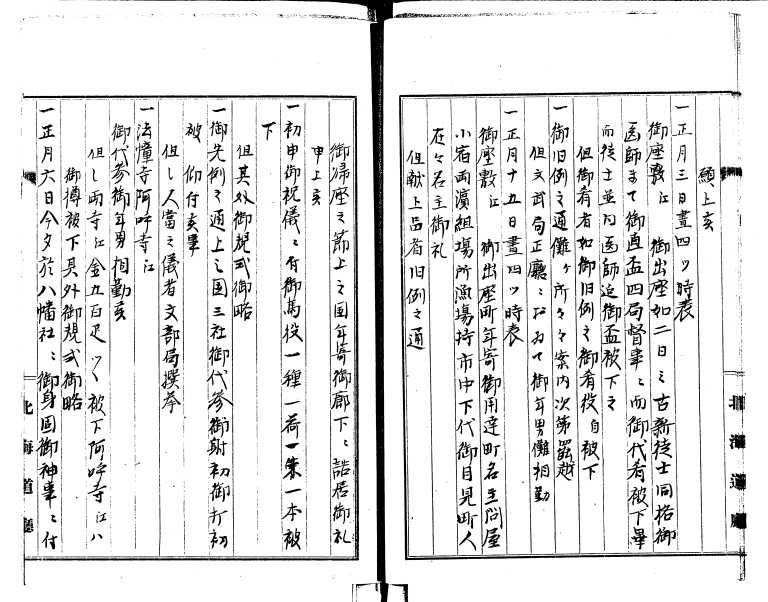 願上亥
一正月三日晝四ツ時表
御座敷江 御出座如二日之古新徒士同格御
医師まて御直盃四局督事ニ而御代肴被下畢
而徒士並内医師迄御盃被下之
但御肴者如御旧例之御肴役自被下
一御旧例之通儺ヶ所々々案内次第罷越
但文武局正廳ニおゐて御年男儺相勤
一正月十五日晝四ツ時表
御座敷江 御出座町年寄御用達町名主問屋
小宿両濱組場所漁場持市中下代御目見町人
在々名主御礼
但献上品者旧例之通
北海道廳
御帰座之節上之国年寄御廊下ニ詰居御礼
申上亥
一初申御祝儀ニ付御馬役一種一荷一束一本被
下
但其外御規式御略
一御先例之通上之国三社御代参御射初御打初
被 仰付亥事
但し人當之儀者文部局撰挙
一法幢寺阿吽寺江
御代参御年男相勤亥
但し両寺江金五百疋ツヽ被下阿吽寺江ハ
御樽被下其外御規式御略
一正月六日今夕於八幡社ニ御身固御神事ニ付
北海道廳